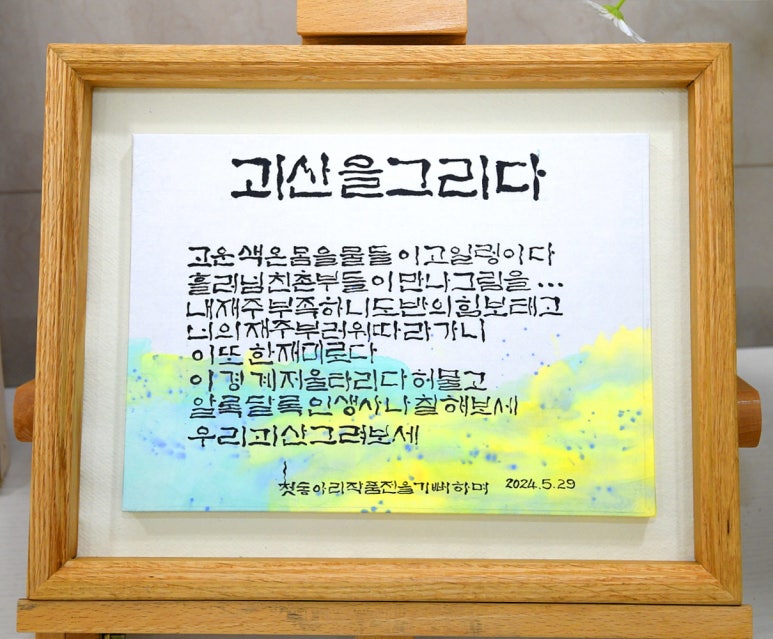 괴산을그리다
고운색온몸을물들이고일렁이다
흘러넘친촌부들이만나그림을...
내재주부족하니도반의힘보태고
너의재주부러워따라가니
이또한재미로다
이경계저울타리다허물고
알록달록인생사나칠해보세
우리괴산그려보세
첫송아리작품전을기뻐하며 2024.5.29